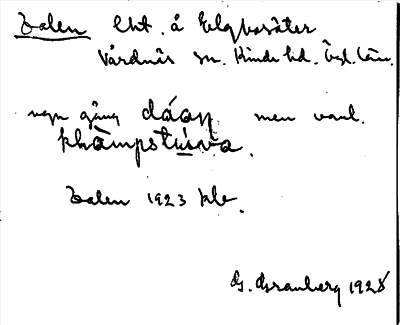 Dalen lht. å Elgbosäter
Vårdnäs sn. Kinda hd. Ögl. län.
ngn gång dáoŋ men vanl.
khàmpstúsva.
Dalen 1923 kbr.
G. Granberg 1928